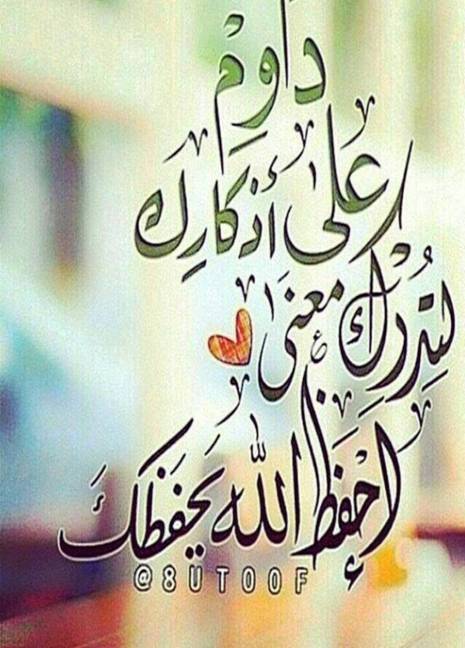 دَاوِمْ
عَلى أَذكَارِك
لتُدْرِك معنَى
اِحْفَظْ الله يَحفَظكَ
@8UTOOF